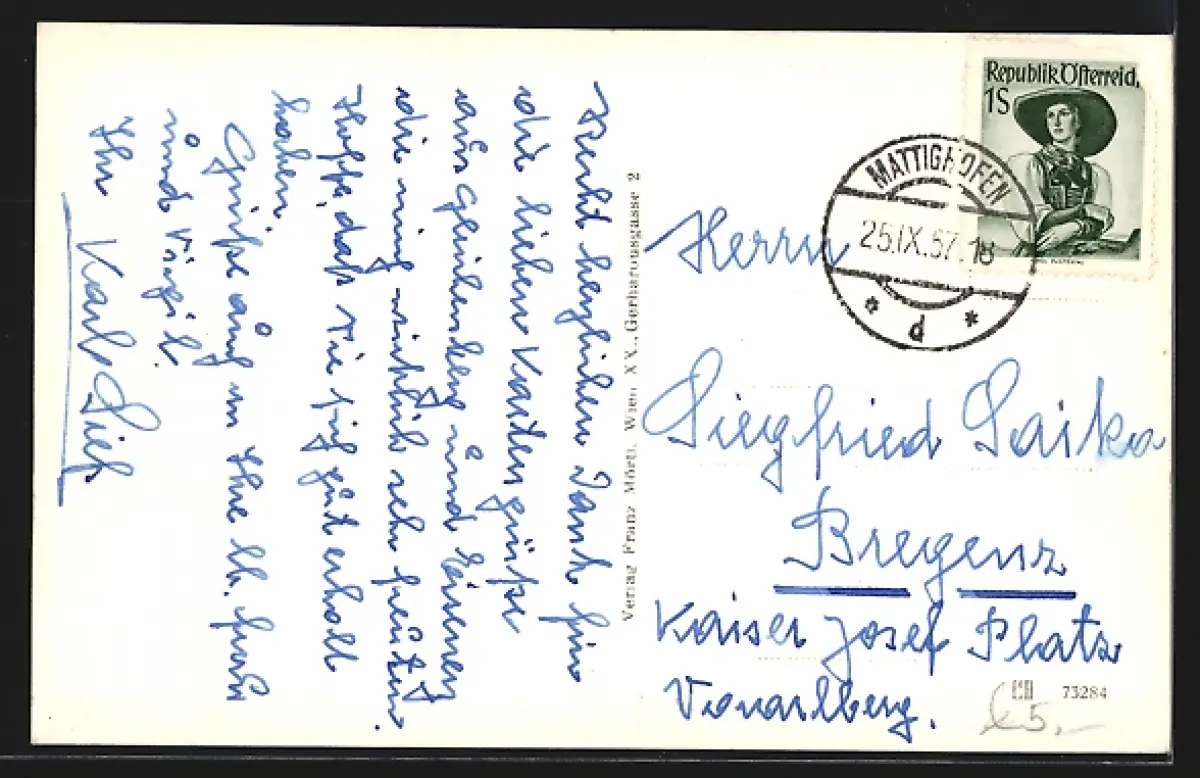 Recht herzlichen Dank für
die lieben Kartengrüße
aus Gleichenberg und
die mich wirklich sehr freuten.
Hoffe, daß Sie sich gut erholt
haben.
Grüße auch an Ihre lb. Frau
und
Ihr Karl
Verlag Franz Mörtl, Wien XX., Gerhardusgasse 2
Republik Österreich
1S
MATTIGHOFEN
25.IX.57.18
* d *
Herrn
Siegfried Saika
Bregenz
Kaiser Josef Platz
Vorarlberg.
73284
5,-